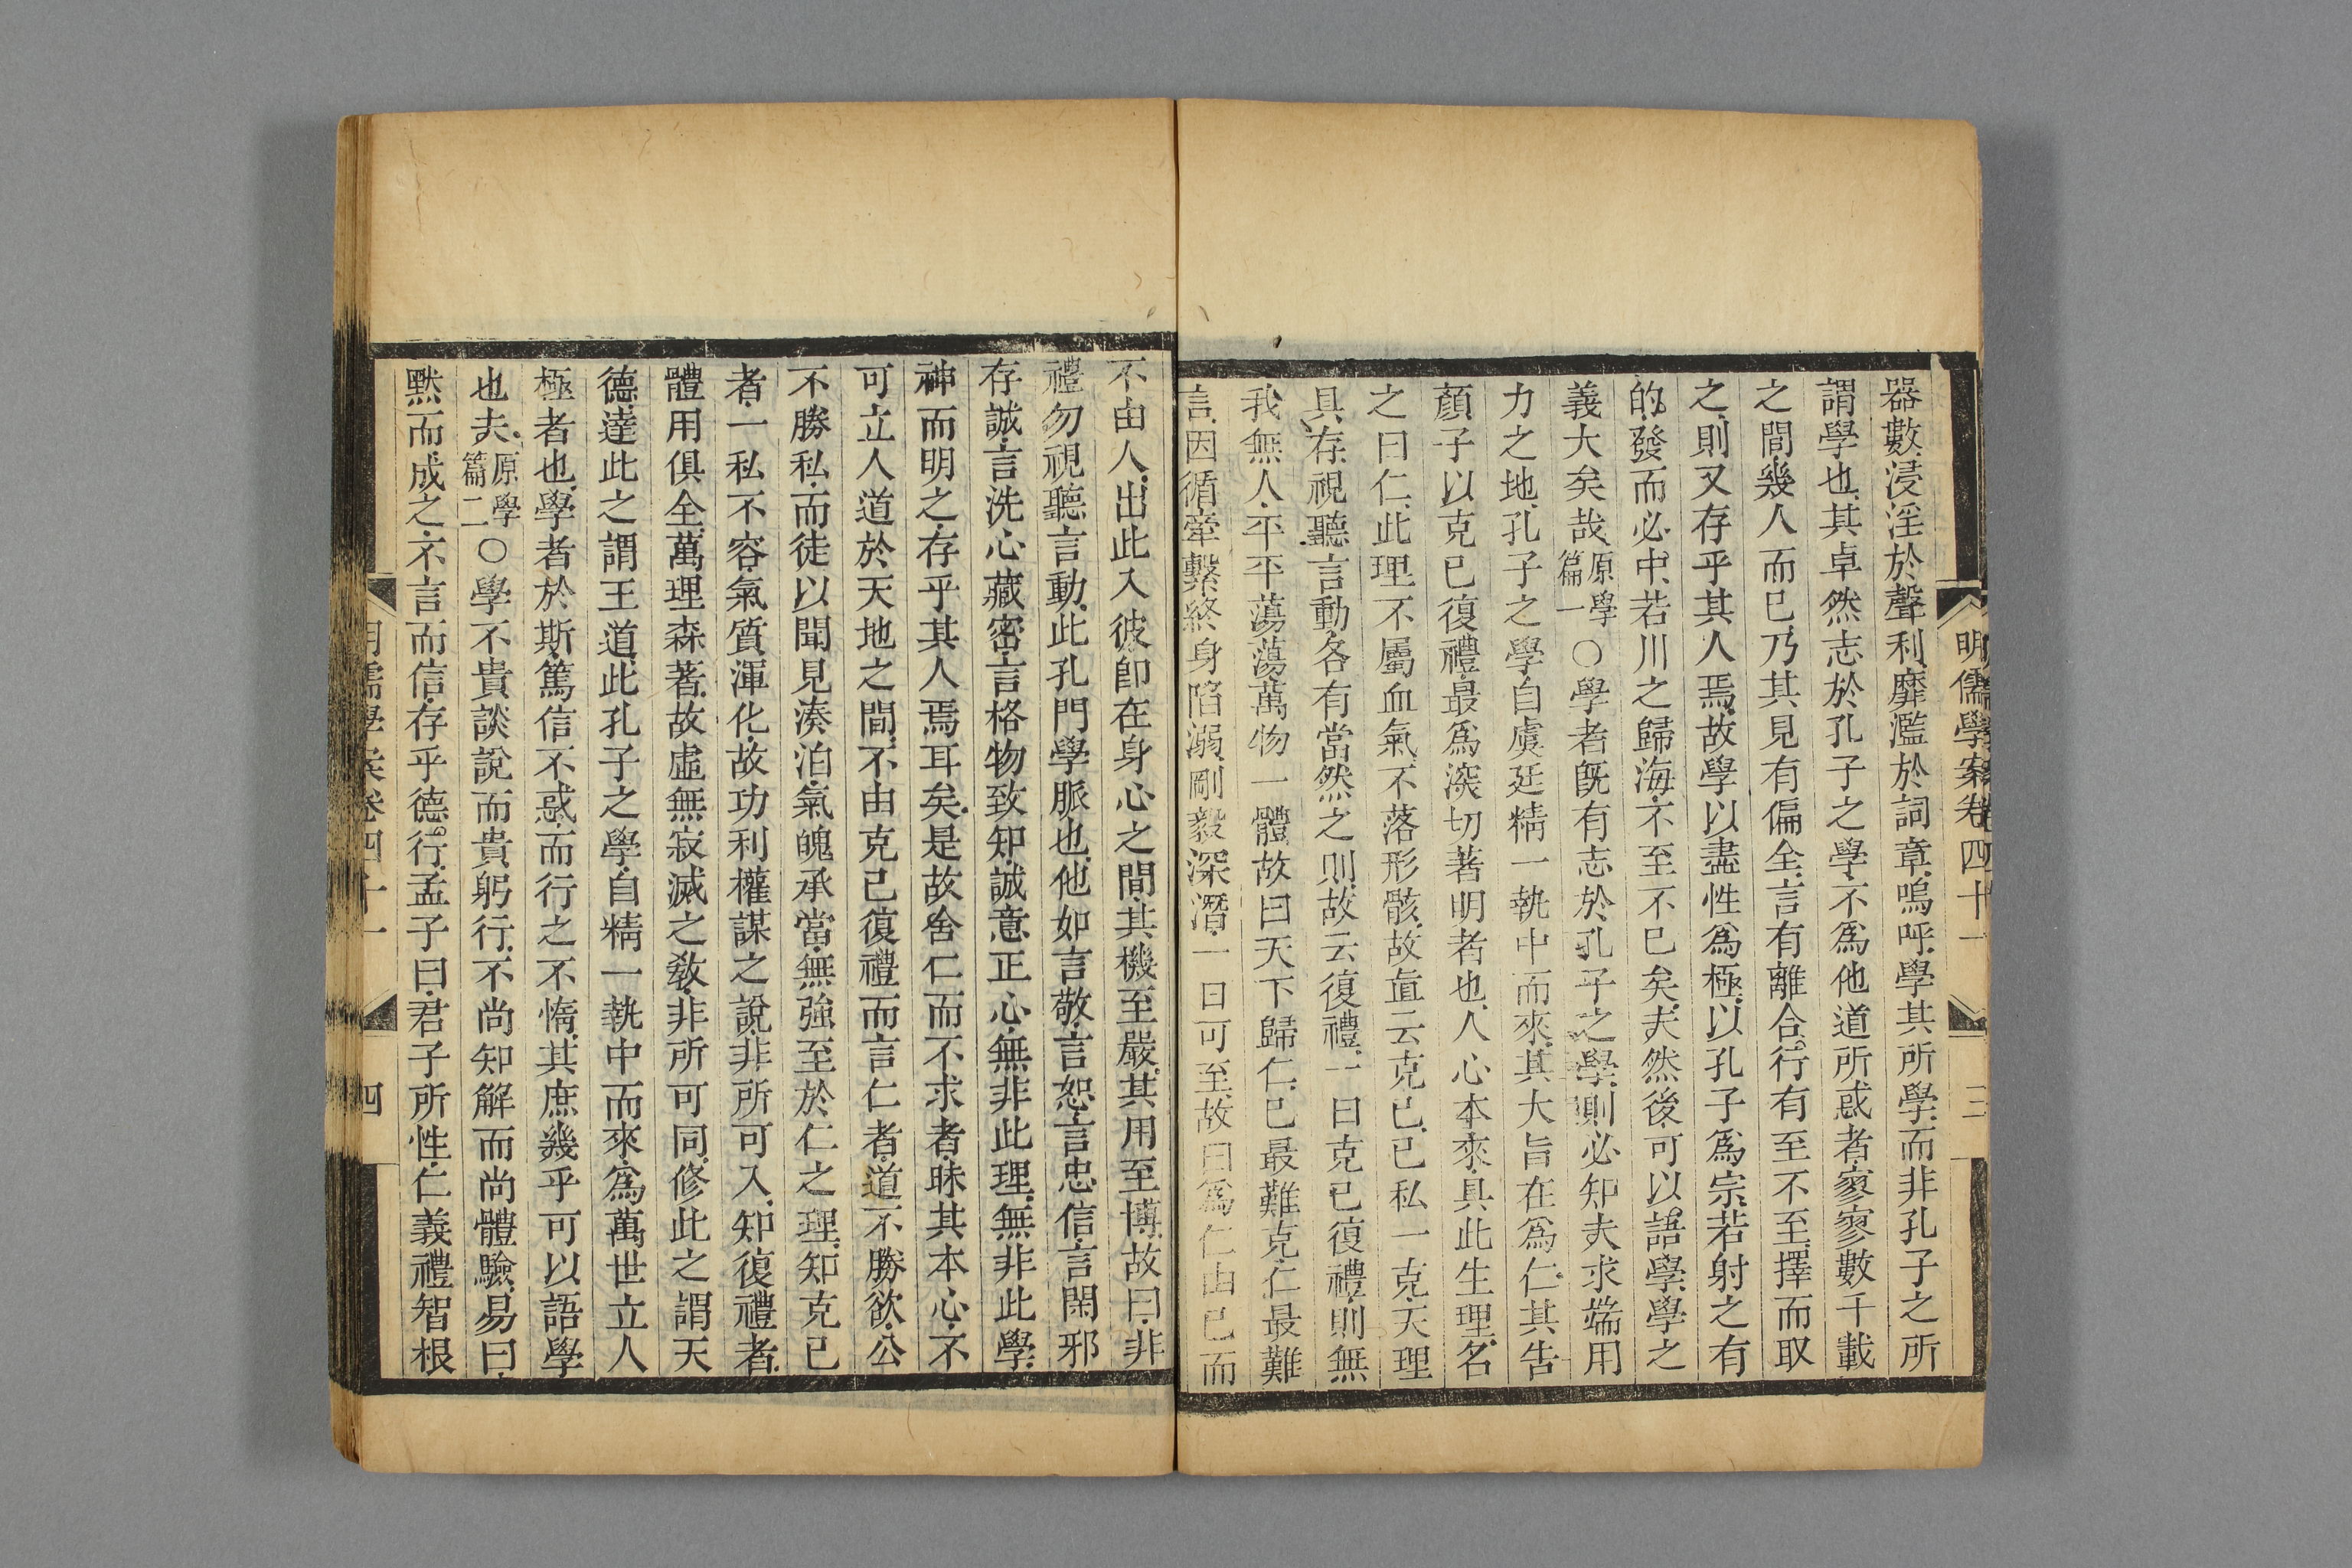 明儒學案卷四十一 三
器數浸淫於聲利靡濫於詞章嗚呼學其所學而非孔子之所
謂學也其卓然志於孔子之學不爲他道所惑者寥寥數千載
之間幾人而已乃其見有偏全言有離合行有至不至擇而取
之則又存乎其人焉故學以盡性爲極以孔子爲宗若射之有
的發而必中若川之歸海不至不已矣夫然後可以語學學之
義大矣哉原學篇一○學者旣有志於孔子之學則必知夫求端用
力之地孔子之學自虞廷精一執中而來其大旨在爲仁其告
顏子以克已復禮最爲深切著明者也人心本來具此生理名
之曰仁此理不屬血氣不落形骸故直云克已已私一克天理
具存視聽言動各有當然之則故云復禮一日克已復禮則無
我無人平平蕩蕩萬物一體故曰天下歸仁已最難克仁最難
言因循牽繫終身陷溺剛毅深潛一日可至故曰爲仁由已而
不由人出此入彼卽在身心之間其機至嚴其用至博故曰非
禮勿視聽言動此孔門學脈也他如言敬言恕言忠信言閑邪
存誠言洗心藏密言格物致知誠意正心無非此理無非此學
神而明之存乎其人焉耳矣是故舍仁而不求者昧其本心不
可立人道於天地之間不由克己復禮而言仁者道不勝欲公
不勝私而徒以聞見湊泊氣魄承當無強至於仁之理知克己
者一私不容氣質渾化故功利權謀之說非所可入知復禮者
體用俱全萬理森著故虛無寂滅之敎非所可同修此之謂天
德達此之謂王道此孔子之學自精一執中而來爲萬世立人
極者也學者於斯篤信不惑而行之不惰其庶幾乎可以語學
也夫原學篇二○學不貴談說而貴躬行不尚知解而尚體驗易曰
默而成之不言而信存乎德行孟子曰君子所性仁義禮智根
明儒學案卷四十一 四